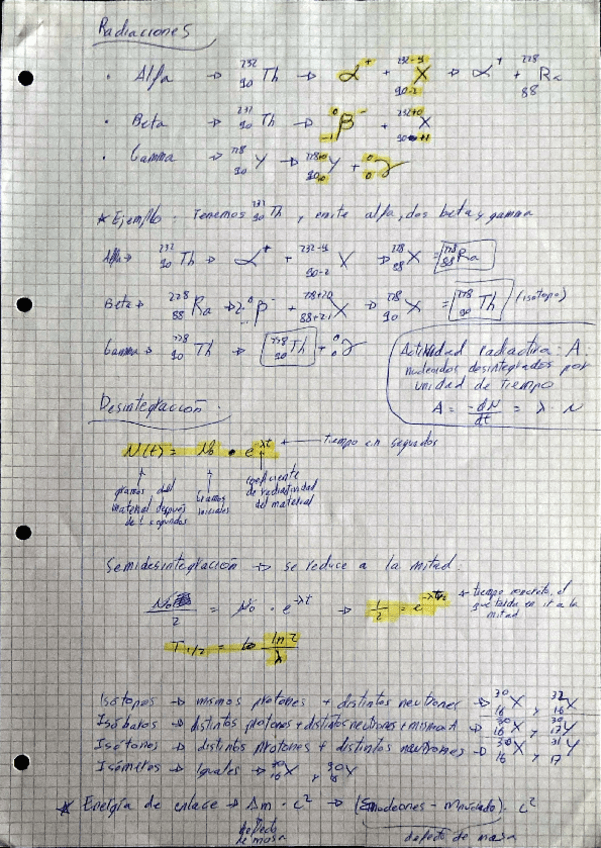 Radiaciones
· Alfa → ²³²₉₀Th → α⁺ + ²³²⁻⁴₉₀₋₂X → α⁺ + ²²⁸₈₈Ra
· Beta → ²³²₉₀Th → ⁰₋₁β⁻ + ²³²⁺⁰₉₀₊₁X
· Gamma → ²²⁸₉₀Y → ²²⁸⁺⁰₉₀₊₀Y + ⁰₀γ
* Ejemplo: Tenemos ²³²₉₀Th, emite alfa, dos beta y gamma
Alfa → ²³²₉₀Th → α⁺ + ²³²⁻⁴₉₀₋₂X → ²²⁸₈₈X = ²²⁸₈₈Ra
Beta → ²²⁸₈₈Ra → 2·⁰β⁻ + X → ²²⁸₉₀X = ²²⁸₉₀Th (isótopo)
Gamma → ²²⁸₉₀Th → ²²⁸₉₀Th + ⁰₀γ
Actividad radiactiva: A:
nucleidos desintegrados por
unidad de tiempo
A = -dN/dt = λ · N
Desintegración
N(t) = N₀ · e^λt ← tiempo en segundos
gramos del material después de t segundos
Gramos iniciales
coeficiente de radiactividad del material
Semidesintegración → se reduce a la mitad:
N₀/2 = N₀ · e^-λt → 1/2 = e^-λt1/2
tiempo concreto, el que tarda en ir a la mitad
T1/2 = ln 2/λ
Isótopos → mismos protones + distintos neutrones → ³⁰₁₆X, ³²₁₆X
Isóbaros → distintos protones + distintos neutrones + mismo A → ³⁰₁₆X, ³⁰₁₇Y
Isótonos → distintos protones + distintos neutrones → ³⁰₁₆X, ³¹₁₇Y
Isómeros → Iguales → ³⁰₁₆X, ³⁰₁₆X
* Energía de enlace → Δm · c² → (Σmnucleones - mnucleido) · c²
defecto de masa
defecto de masa